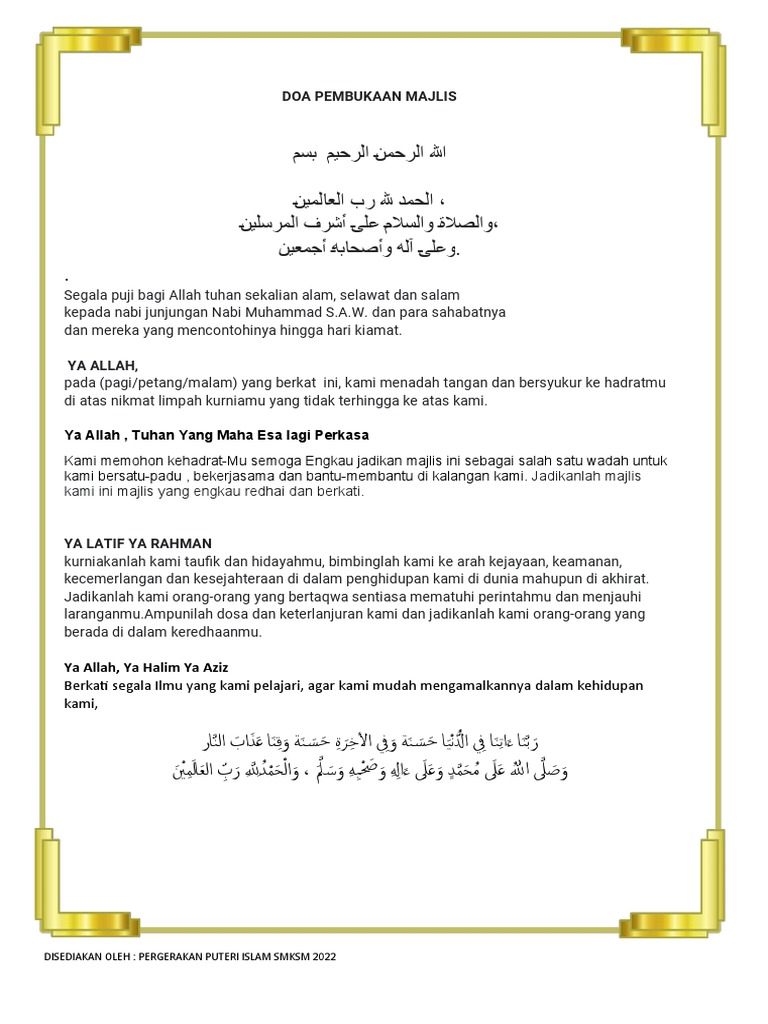 DOA PEMBUKAAN MAJLIS
الله الرحمن الرحيم بسم
الحمد لله رب العالمين ،
والصلاة والسلام على أشرف المرسلين،
وعلى آله وأصحابه أجمعين.
.
Segala puji bagi Allah tuhan sekalian alam, selawat dan salam
kepada nabi junjungan Nabi Muhammad S.A.W. dan para sahabatnya
dan mereka yang mencontohinya hingga hari kiamat.
YA ALLAH,
pada (pagi/petang/malam) yang berkat  ini, kami menadah tangan dan bersyukur ke hadratmu
di atas nikmat limpah kurniamu yang tidak terhingga ke atas kami.
Ya Allah , Tuhan Yang Maha Esa lagi Perkasa
Kami memohon kehadrat-Mu semoga Engkau jadikan majlis ini sebagai salah satu wadah untuk
kami bersatu-padu , bekerjasama dan bantu-membantu di kalangan kami. Jadikanlah majlis
kami ini majlis yang engkau redhai dan berkati.
YA LATIF YA RAHMAN
kurniakanlah kami taufik dan hidayahmu, bimbinglah kami ke arah kejayaan, keamanan,
kecemerlangan dan kesejahteraan di dalam penghidupan kami di dunia mahupun di akhirat.
Jadikanlah kami orang-orang yang bertaqwa sentiasa mematuhi perintahmu dan menjauhi
laranganmu.Ampunilah dosa dan keterlanjuran kami dan jadikanlah kami orang-orang yang
berada di dalam keredhaanmu.
Ya Allah, Ya Halim Ya Aziz
Berkati segala Ilmu yang kami pelajari, agar kami mudah mengamalkannya dalam kehidupan
kami,
رَبَّنَا ءَاتِنَا فِي الدُّنْيَا حَسَنَة وَفِي الآخِرَةِ حَسَنَة وَقِنَا عَذَابَ النَّار
وَصَلَّى اللهُ عَلَى مُحَمَّدٍ وَعَلَى ءَالِهِ وَصَحْبِهِ وَسَلَّمَ ، وَالْحَمْدُلِلَّهِ رَبِّ العَالَمِيْنَ
DISEDIAKAN OLEH : PERGERAKAN PUTERI ISLAM SMKSM 2022